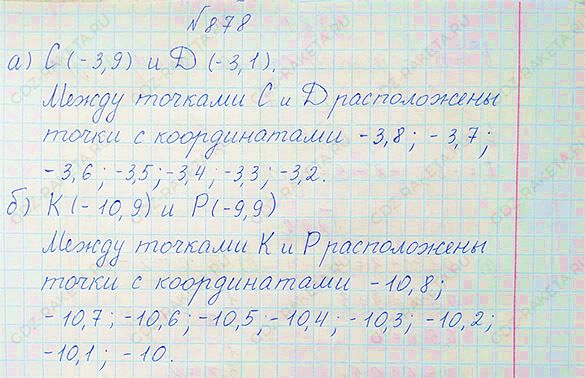 №878
а) С (-3,9) и D (-3,1).
Между точками С и D расположены
точки с координатами -3,8; -3,7;
-3,6; -3,5; -3,4; -3,3; -3,2.
б) К (-10,9) и Р(-9,9)
Между точками К и Р расположены
точки с координатами -10,8;
-10,7; -10,6; -10,5; -10,4; -10,3; -10,2;
-10,1; -10.
GDZ-RAKETA.RU